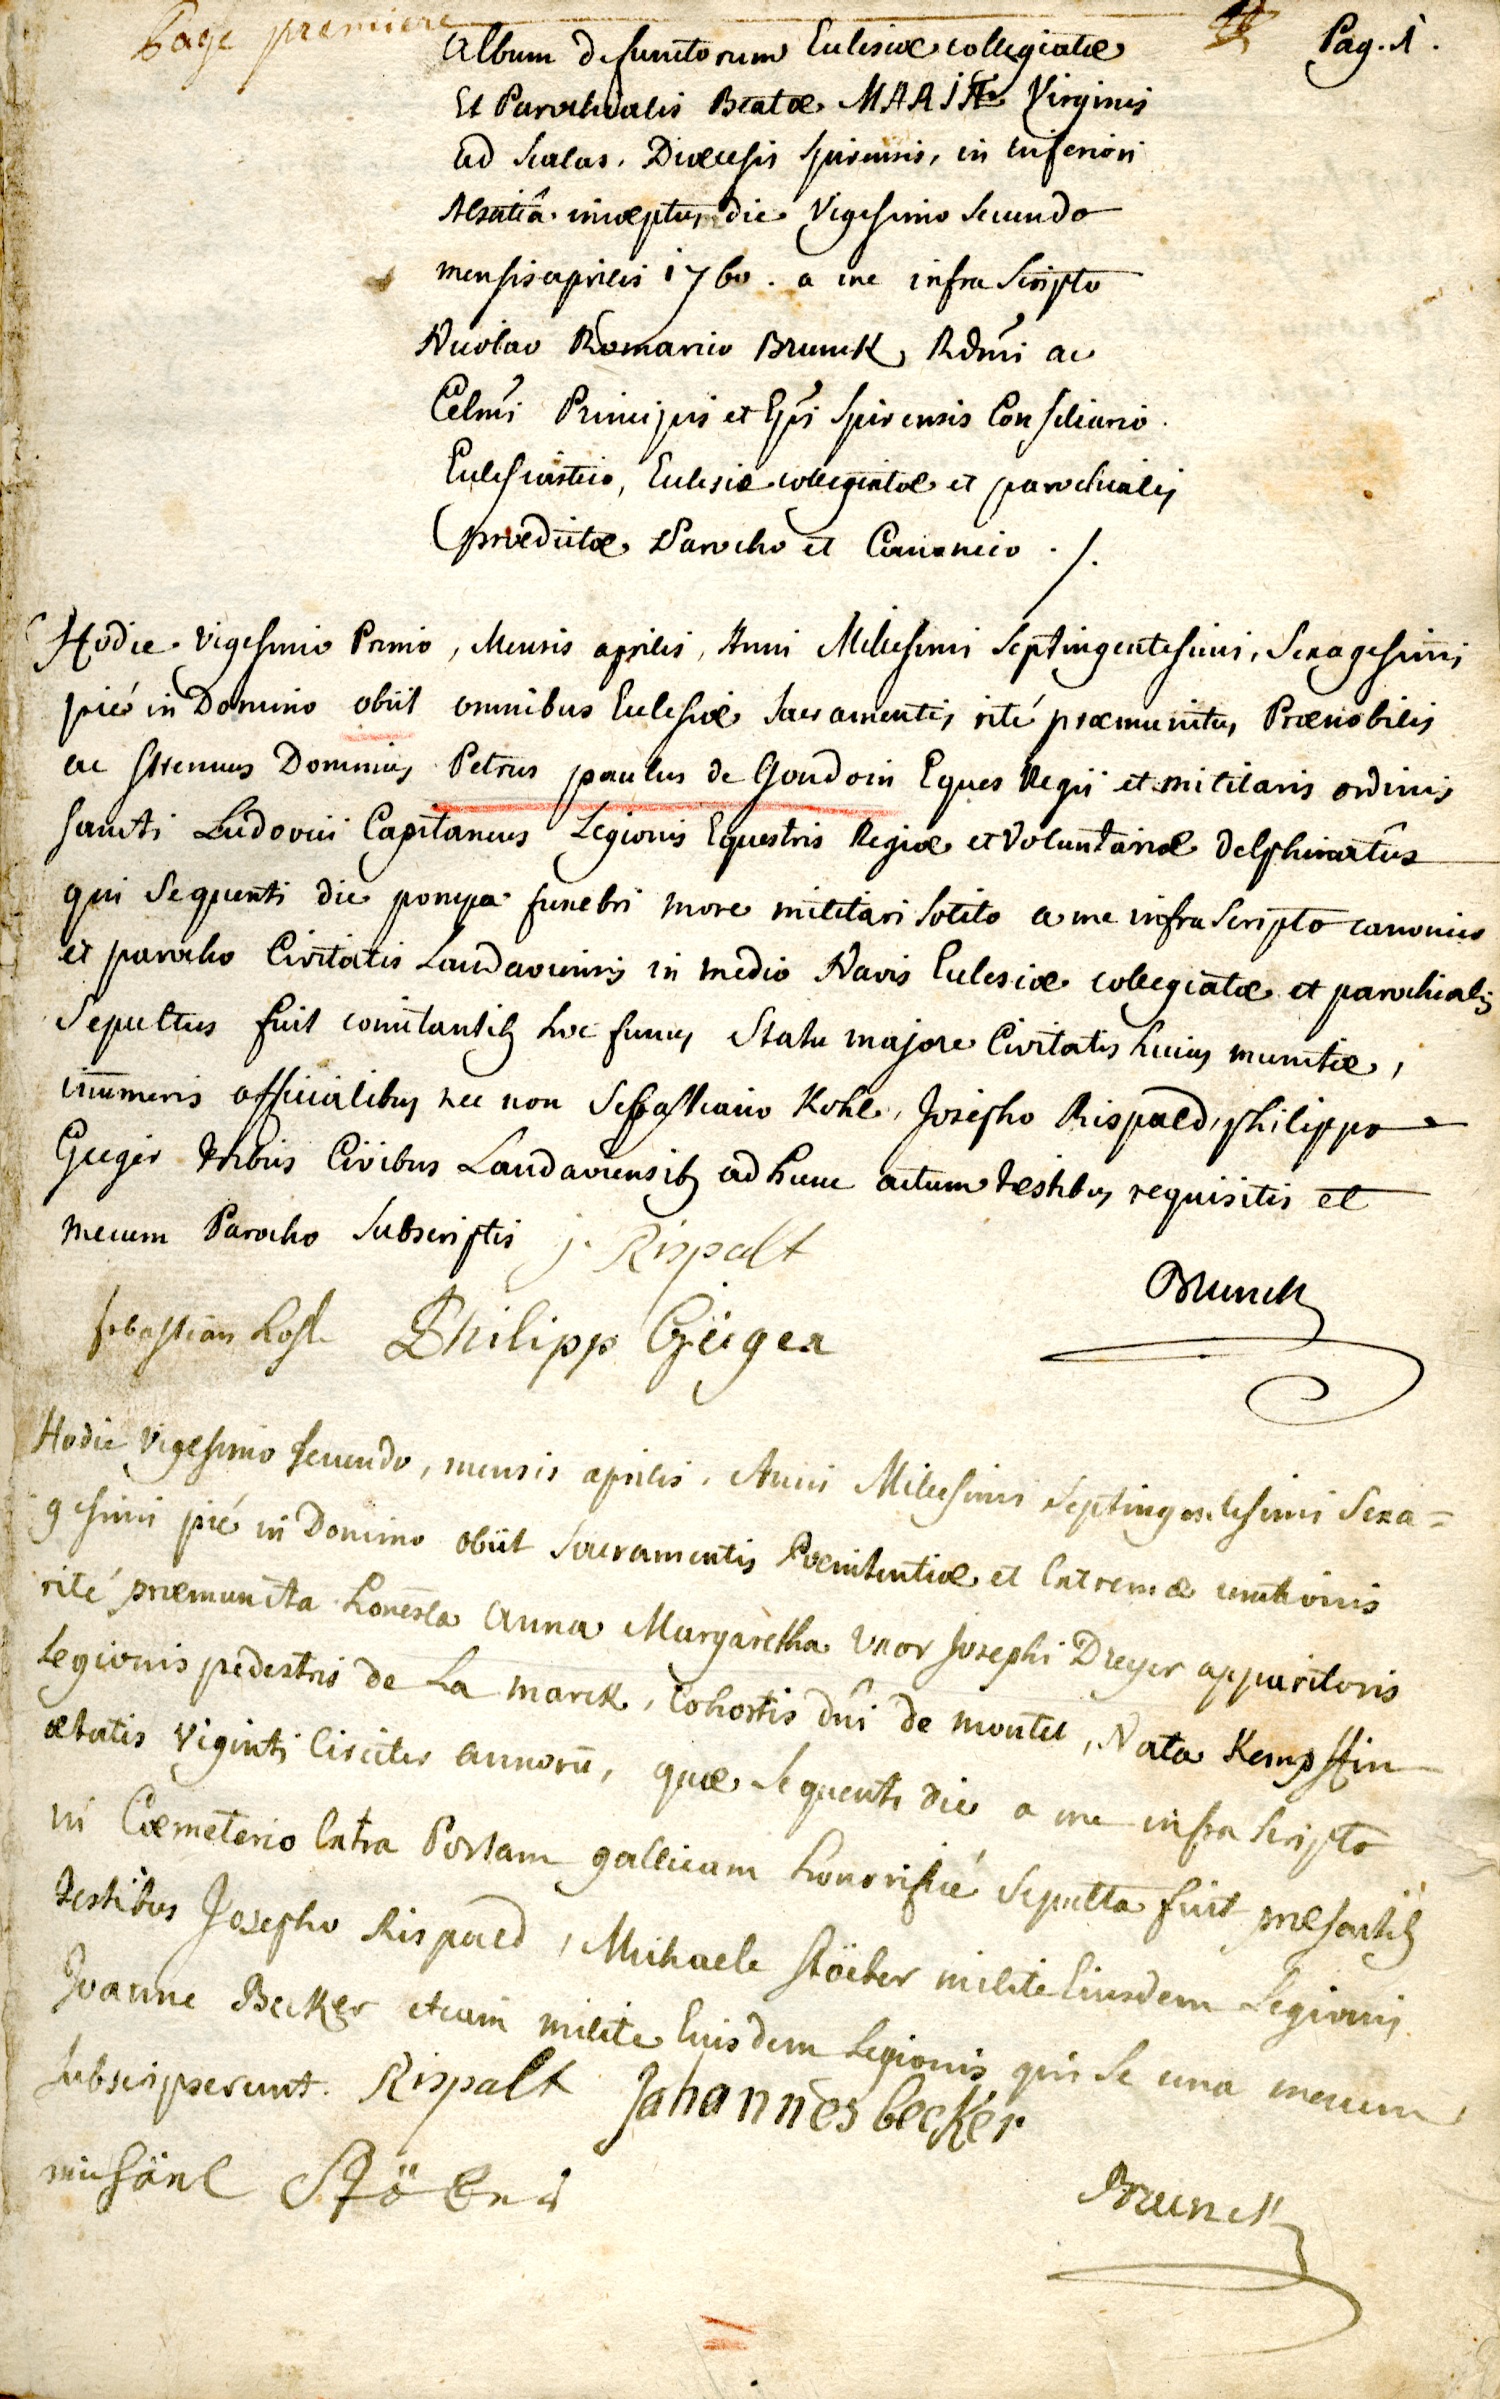 Page premiere
Pag. 1.
Album defunctorum Ecclesiæ collegiatæ
Et Parochialis Beatæ MARIÆ Virginis
ad Scalas. Diœcesis Spirensis, in inferiori
Alsatiâ inceptum die Vigesimo Secundo
mensis aprilis 1760. a me infra Scripto
Nicolao Romarico Brunck, Rdmi ac
Celmi Principis et Epi Spirensis Consiliario
Ecclesiastico, Ecclesiæ collegiatæ et parochialis
prædictæ Parocho et Canonico ./.
Hodie Vigesimo Primo, Mensis aprilis, Anni Millesimi Septingentesimi, Sexagesimi
pié in Domino obiit omnibus Ecclesiæ Sacramentis rité præmunitus Prænobilis
ac Strenuus Dominus Petrus paulus de Goudoin Eques Regii et militaris ordinis
Sancti Ludovici Capitaneus Legionis Equestris Regiæ et Voluntariæ delphinatûs
qui Sequenti die pompa funebri more militari Solito a me infra Scripto canonico
et parocho Civitatis Landaviensis in medio Navis Ecclesiæ collegiatæ et parochialis
Sepultus fuit comitantib hoc funus Statu majore Civitatis huius munitæ,
innumeris officialibus nec non Sebastiano Kohl, Josepho Rispald, philippo
Geiger tribus Civibus Landaviensib ad hunc actum testibus requisitis et
mecum Parocho Subscriptis j. Rispalt
Brunck
sebastian Kohl Philipp Geiger
Hodie Vigesimo secundo, mensis aprilis, Anni Millesimi Septingentesimi Sexa=
gesimi pié in Domino obiit Sacramentis Pœnitentiæ et Extremæ unctionis
rité præmunita honesta Anna Margaretha Uxor Josephi Dreyer apparitoris
Legionis pedestris de La marck, Cohortis dni de montel, Nata Kempffin
ætatis Viginti Circiter annorū, quæ Sequenti die a me infra Scripto
in Cœmeterio Extra Portam gallicam honorificé Sepulta fuit præsentib
testibus Josepho Rispald, Michaele Stöeber milite Eiusdem Legionis
Joanne Becker etiam milite Eiusdem Legionis qui Se una mecum
Subscripserunt. Rispalt Johannes becker
michäel Stöber
Brunck